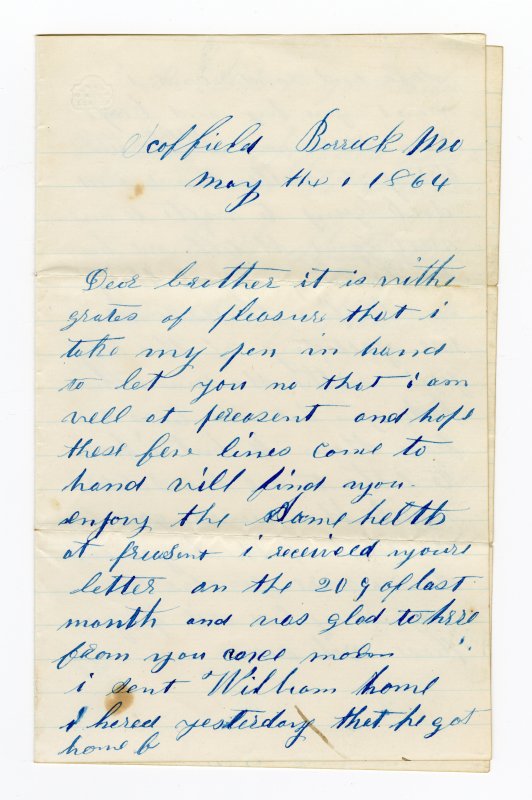 Scoffield Borrick Mo
May the 1 1864
Dear brother it is withe
grates of pleasure that i
take my pen in hand
to let you no that i am
well at pereasent and hope
these few lines come to
hand will find you
enjoy the Same helth
at preasent i received youre
letter on the 29 of last
month and was glad to here
from you
i sent William home
i hered yesterday thet he got
home b